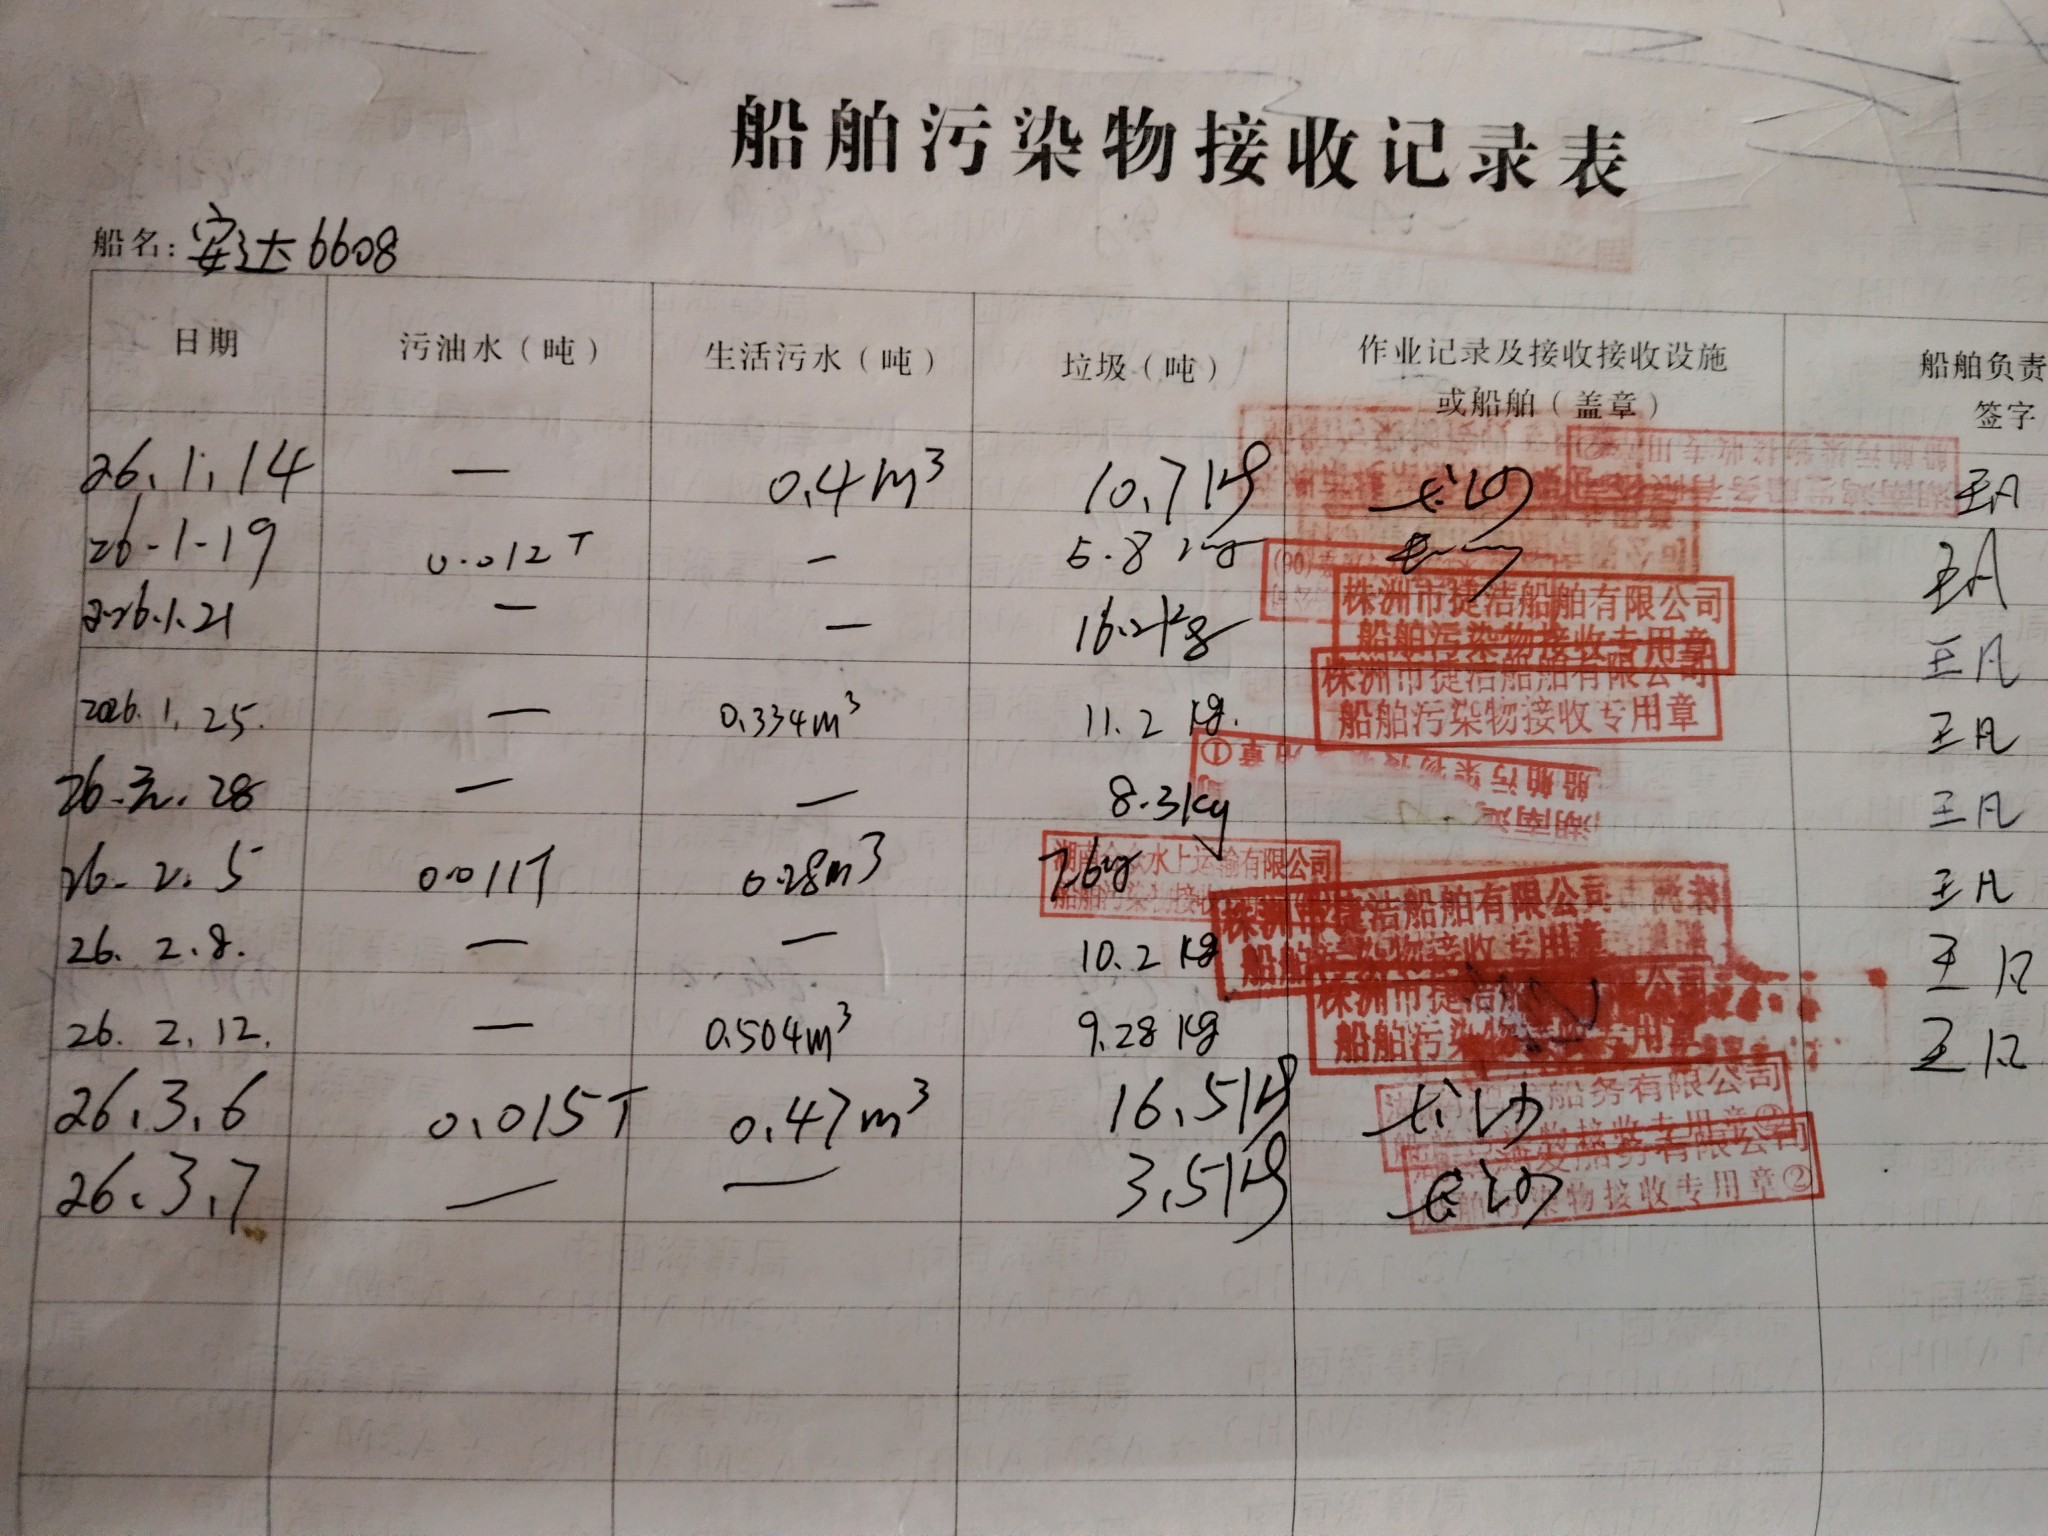 船舶污染物接收记录表
船名: 安达6608
日期 污油水（吨） 生活污水（吨） 垃圾（吨） 作业记录及接收接收设施或船舶（盖章） 船舶负责 签字
26.1.14 — 0.4m³ 10.7kg 长沙 王凡
26-1-19 0.012T — 5.8kg 王凡
2026.1.21 — — 16.2kg 王凡
株洲市捷洁船舶有限公司
船舶污染物接收专用章
2026.1.25. — 0.334m³ 11.2kg. 王凡
株洲市捷洁船舶有限公司
船舶污染物接收专用章
26.元.28 — — 8.3kg 王凡
26.2.5 0.011T 0.28m³ 7.6kg 王凡
水上运输有限公司
船舶污染物接收
26.2.8. — — 10.2kg 王凡
株洲市捷洁船舶有限公司
船舶污染物接收专用章
26.2.12. — 0.504m³ 9.28kg 王凡
株洲市捷洁 公司
船舶污染物接收专用章
26.3.6 0.015T 0.47m³ 16.5kg 长沙
船务有限公司
26.3.7 — — 3.5kg 长沙
船务有限公司
船舶污染物接收专用章②